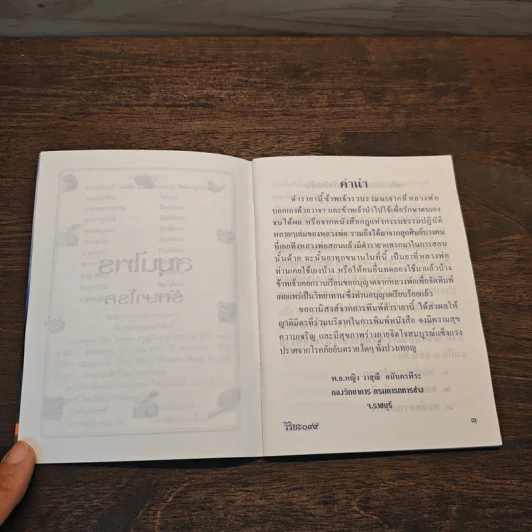 คำนำ
ตำรายานี้ข้าพเจ้ารวบรวมมาจากที่หลวงพ่อ
บอกเองด้วยวาจา และข้าพเจ้านำไปใช้เพื่อรักษาตนเอง
จนได้ผล หรือจากหนังสือกฎแห่งกรรมธรรมปฏิบัติ
หลายๆเล่มของหลวงพ่อ รวมถึงได้มาจากลูกศิษย์บางคน
ที่เคยฟังหลวงพ่อสอนแล้วมีตำรายาแทรกมาในการสอน
นั้นด้วย ฉะนั้นยาทุกขนานในที่นี้ เป็นยาที่หลวงพ่อ
ท่านเคยใช้เองบ้าง หรือให้คนอื่นทดลองใช้มาแล้วบ้าง
ข้าพเจ้าเคยกราบเรียนขออนุญาตจากหลวงพ่อเพื่อจัดพิมพ์
เผยแพร่เป็นวิทยาทาน ซึ่งท่านอนุญาตเรียบร้อยแล้ว
ขออานิสงส์จากการพิมพ์ตำรายานี้ ได้ส่งผลให้
ญาติมิตรที่ร่วมบริจาคในการพิมพ์หนังสือ จงมีความสุข
ความเจริญ และมีสุขภาพร่างกายจิตใจสมบูรณ์แข็งแรง
ปราศจากโรคภัยอันตรายใดๆ ทั้งปวงเทอญ
พ.อ.หญิง วาสุณี อนันตรพีระ
กองวิทยาการ กรมการทหารช่าง
จ.ราชบุรี
วิริยะ๐๙๕
๓